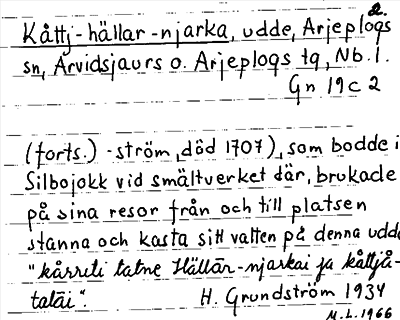 2.
Kåttj-hällar-njarka, udde, Arjeplogs
sn, Arvidsjaurs o. Arjeplogs tg, Nb. l.
Gn 19 c 2
(forts.) -ström, död 1707), som bodde i
Silbojokk vid smältverket där, brukade
på sina resor från och till platsen
stanna och kasta sitt vatten på denna udde
"kårrili tatne Hällār-njarkai ja kåttjå-
talāi".
H. Grundström 1934
M.L. 1966